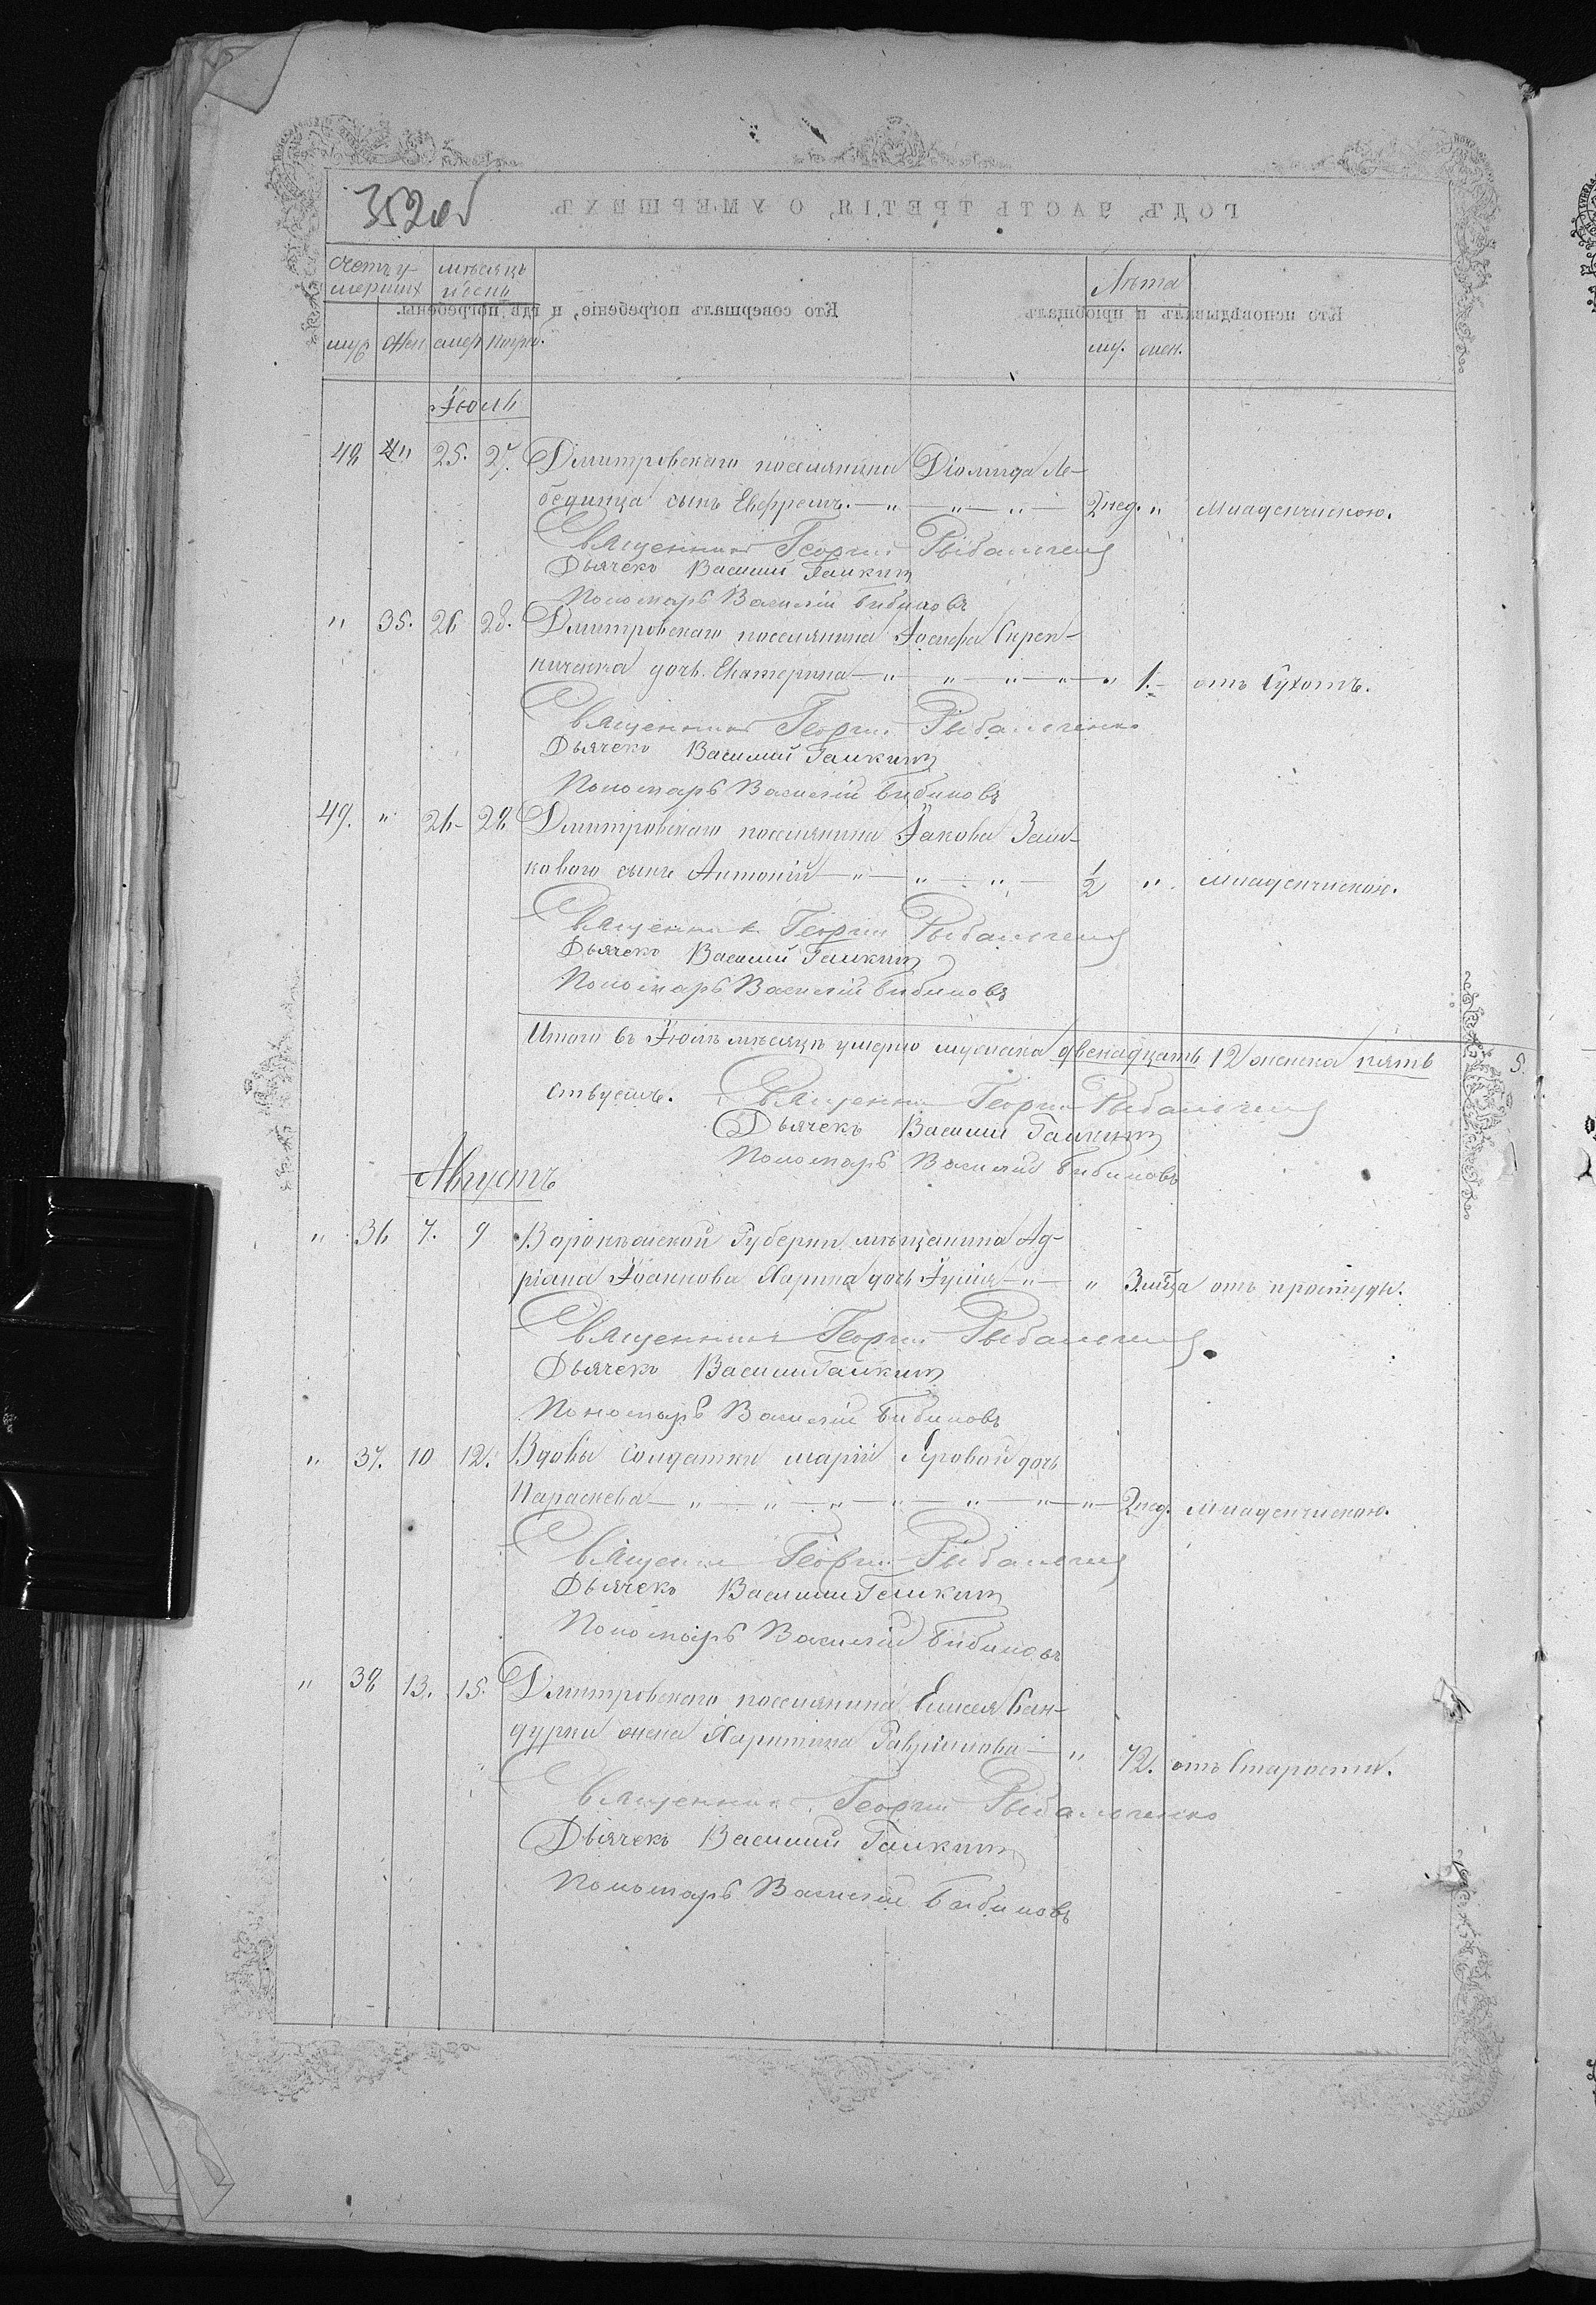 352об
ГОДЪ, ЧАСТЬ ТРЕТІЯ, О УМЕРШИХЪ.
Счетъ у- мѣсяцъ Лѣта
мершихъ и день
Кто совершалъ погребеніе, и гдѣ погребены. Кто исповѣдывалъ и пріобщалъ
муж жен смер погреб. му. жен.
Іюль
48 " 25. 27. Дмитровскаго поселянина Діомида Ле-
бединца сынъ Евфремъ. — " — " — " — 2 нед. " Младенческою.
Священникъ Георгій Рыбальченко
Дьячекъ Василий Галкинъ
Пономарь Василій Бибиковъ
" 35. 26 28. Дмитровскаго поселянина Іосифа Скреп-
ниченка дочь Екатерина — " — " — " — " — " 1. — отъ Сухотъ.
Священникъ Георгій Рыбальченко
Дьячекъ Василий Галкинъ
Пономарь Василій Бибиковъ
49. " 26 — 28. Дмитровскаго поселянина Іакова Зам-
коваго сынъ Антоній — " — " — " — 1/2 " Младенческою.
Священникъ Георгій Рыбальченко
Дьячекъ Василий Галкинъ
Пономарь Василій Бибиковъ
Итого въ Іюлѣ мѣсяцѣ умерло мужеска двенадцать 12 женска пять 5.
Священникъ Георгій Рыбальченко
Дьячекъ Василий Галкинъ
Пономарь Василій Бибиковъ
Августъ
" 36 7. 9 Воронежской Губерніи мѣщанина Ад-
ріана Іоаннова Ларина дочь Іулія — " — " 3 мѣсца отъ простуды.
Священникъ Георгій Рыбальченко
Дьячекъ Василий Галкинъ
Пономарь Василій Бибиковъ
" 37. 10 12. Вдовы Солдатки Маріи Яровой дочь
Параскева — " — " — " — " — " — " — " — 2 нед. Младенческою.
Священникъ Георгій Рыбальченко
Дьячекъ Василий Галкинъ
Пономарь Василій Бибиковъ
" 38 13. 15. Дмитровскаго поселянина Елисея Бан-
дурки жена Харитина Гавріилова — " 72. отъ Старости.
Священникъ Георгій Рыбальченко
Дьячекъ Василий Галкинъ
Пономарь Василій Бибиковъ